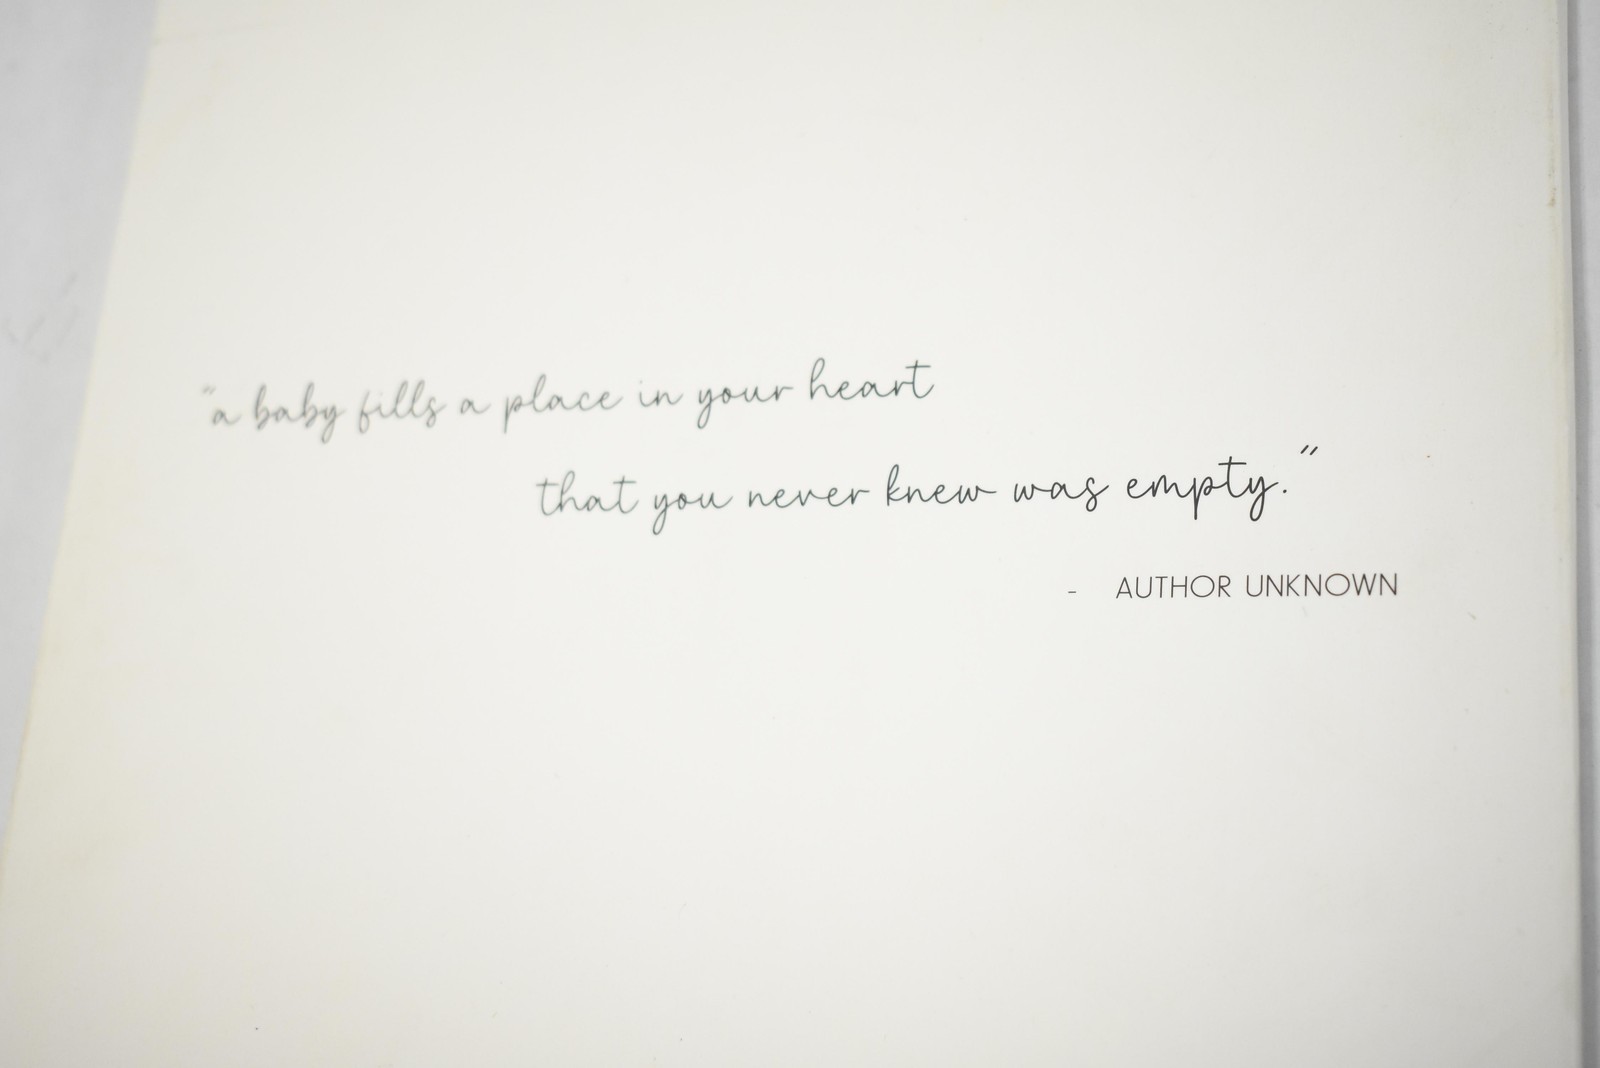 "a baby fills a place in your heart
that you never knew was empty."
- AUTHOR UNKNOWN